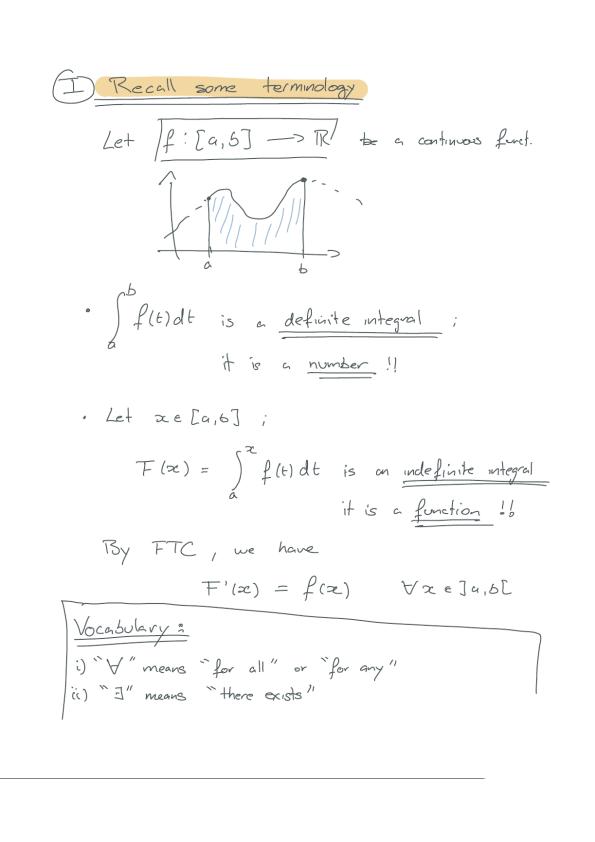 I Recall some terminology
Let f : [a,b] → ℝ be a continuous funct.
a b
• ∫_a^b f(t)dt is a definite integral ;
it is a number !!
• Let x ∈ [a,b] ;
F(x) = ∫_a^x f(t)dt is an indefinite integral
it is a function !!
By FTC, we have
F'(x) = f(x) ∀x ∈ ]a,b[
Vocabulary :
i) "∀" means "for all" or "for any"
ii) "∃" means "there exists"